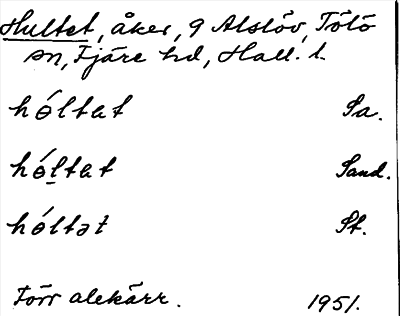 Hultet, åker, 9 Alslöv, Tölö
sn, Fjäre hd, Hall. l.
hóltat Sa.
hó̱ltat Sand.
hóltət St.
Förr alekärr. 1951.